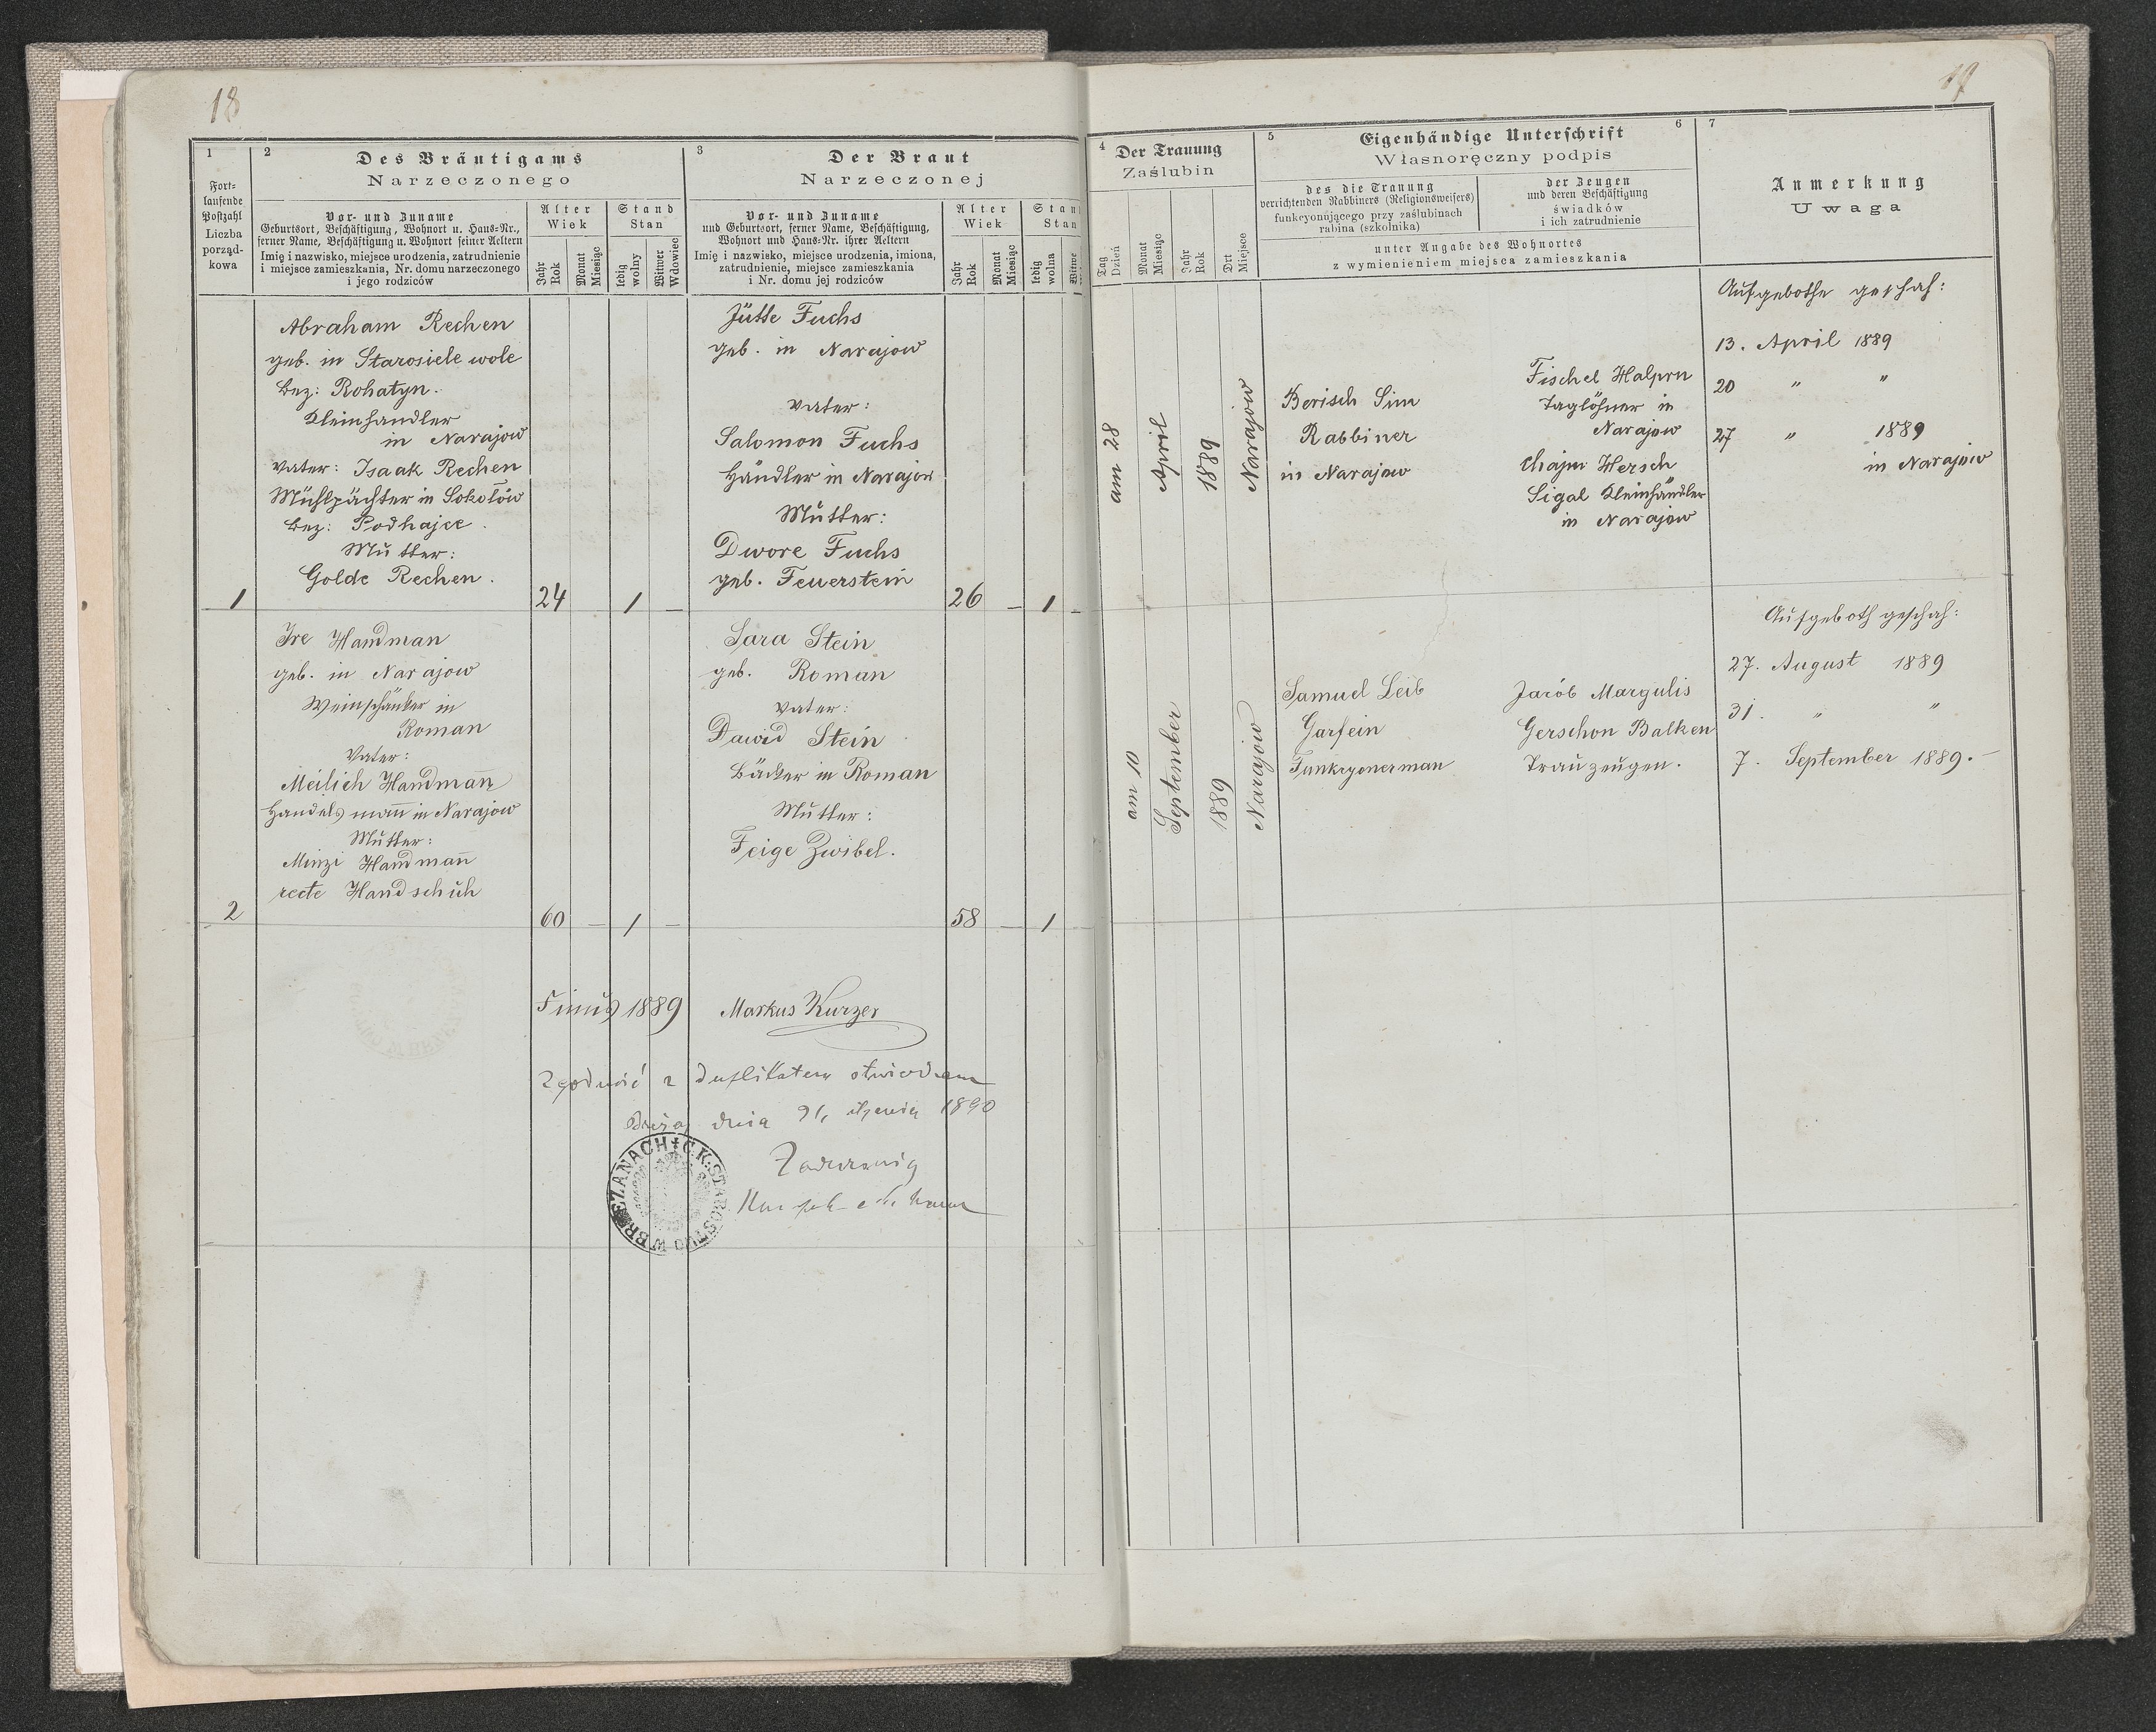 18
19
1
Fort-
laufende
Postzahl
Liczba
porząd-
kowa
2
Des Bräutigams
Narzeczonego
Vor- und Zuname
Geburtsort, Beschäftigung, Wohnort u. Haus-Nr.,
ferner Name, Beschäftigung u. Wohnort seiner Aeltern
Imię i nazwisko, miejsce urodzenia, zatrudnienie
i miejsce zamieszkania, Nr. domu narzeczonego
i jego rodziców
Alter
Wiek
Jahr
Rok
Monat
Miesiąc
Stand
Stan
ledig
wolny
Witwer
Wdowiec
3
Der Braut
Narzeczonej
Vor- und Zuname
und Geburtsort, ferner Name, Beschäftigung,
Wohnort und Haus-Nr. ihrer Aeltern
Imię i nazwisko, miejsce urodzenia, imiona,
zatrudnienie, miejsce zamieszkania
i Nr. domu jej rodziców
Alter
Wiek
Jahr
Rok
Monat
Miesiąc
Stan
Stan
ledig
wolna
Witwe
4
Der Trauung
Zaślubin
Tag
Dzień
Monat
Miesiąc
Jahr
Rok
Ort
Miejsce
5
Eigenhändige Unterschrift
6
Własnoręczny podpis
des die Trauung
verrichtenden Rabbiners (Religionsweisers)
funkcyonującego przy zaślubinach
rabina (szkolnika)
der Zeugen
und deren Beschäftigung
świadków
i ich zatrudnienie
unter Angabe des Wohnortes
z wymienieniem miejsca zamieszkania
7
Anmerkung
Uwaga
1
Abraham Rechen
geb. in Starosiele wole
Bez: Rohatyn.
Kleinhandler
in Narajow
Vater: Isaak Rechen
Mühlpächter in Sokołów
Bez: Podhajce.
Mutter:
Golde Rechen.
24
1
—
Jütte Fuchs
geb. in Narajow
Vater:
Salomon Fuchs
Händler in Narajow
Mutter:
Dwore Fuchs
geb. Feuerstein
26
—
1
—
am 28
April
1889
Narajow
Berisch Sim
Rabbiner
in Narajow
Fischel Halprn
Taglöhner in
Narajow
Chajm Hersch
Sigal Kleinhändler
in Narajow
Aufgebothe geschah:
13. April 1889
20 " "
27 " 1889
in Narajow
2
Ire Handman
geb. in Narajow
Weinschänker in
Roman
Vater:
Meilich Handmañ
Handelsmañ in Narajow
Mutter:
Minzi Handmañ
recte Handschuh
60
—
1
—
Sara Stein
geb. Roman
Vater:
Dawid Stein
Bäcker in Roman
Mutter:
Feige Zwibel.
58
—
1
—
am 10
September
1889
Narajow
Samuel Leib
Garfein
Funkcyonerman
Jacób Margulis
Gerschon Balken
Trauzeugen.
Aufgeboth geschah:
27. August 1889
31. " "
7. September 1889.—
Finus 1889
Markus Kurzer
Zgodność z duplikatem stwierdzam
dnia 1890
C.K. STAROSTWO W BRZEZANACH